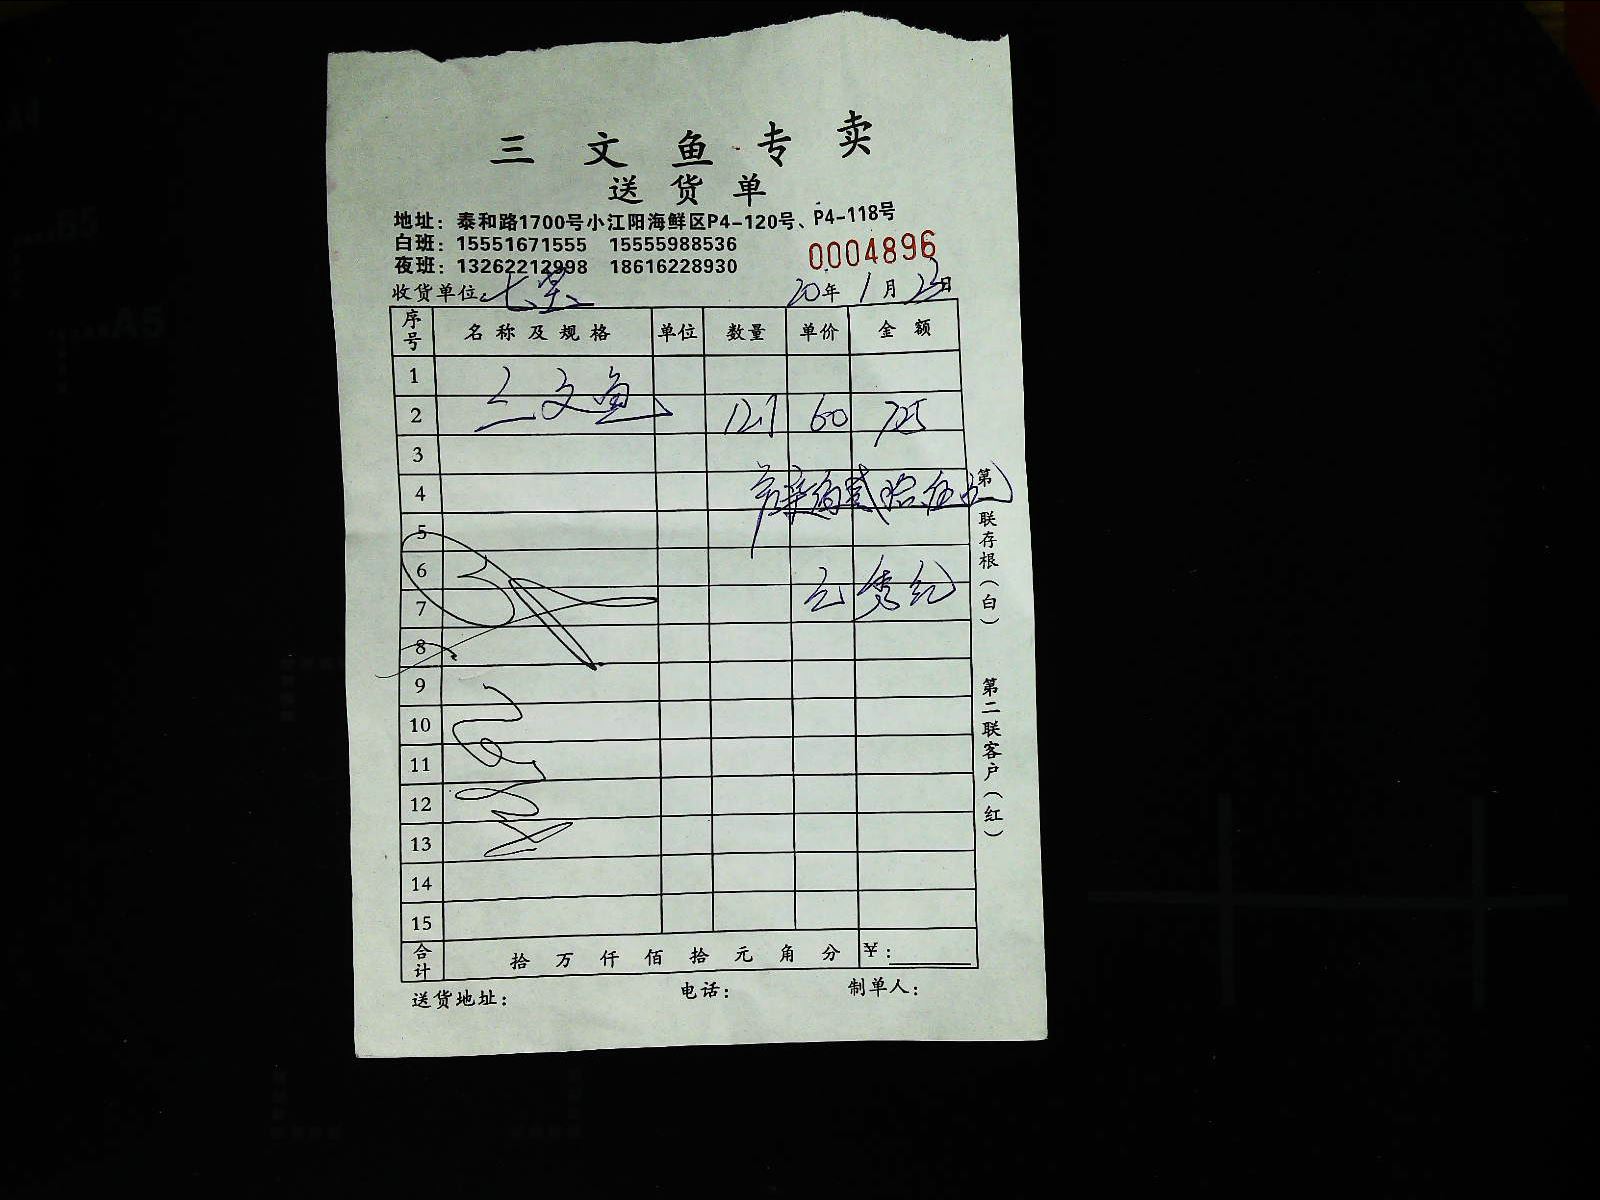 三文鱼专卖
送货单
地址：泰和路1700号小江阳海鲜区P4-120号、P4-118号
白班：15551671555 15555988536
夜班：13262212998 18616228930
0004896
收货单位：七星 20年1月23日
序号 名称及规格 单位 数量 单价 金额
1
三文鱼
2 12.1 60 725
3
4
5
6
7
8
9
10
11
12
13
14
15
合计 拾万仟佰拾元角分 ¥：
送货地址： 电话： 制单人：
第一联存根（白）
第二联客户（红）